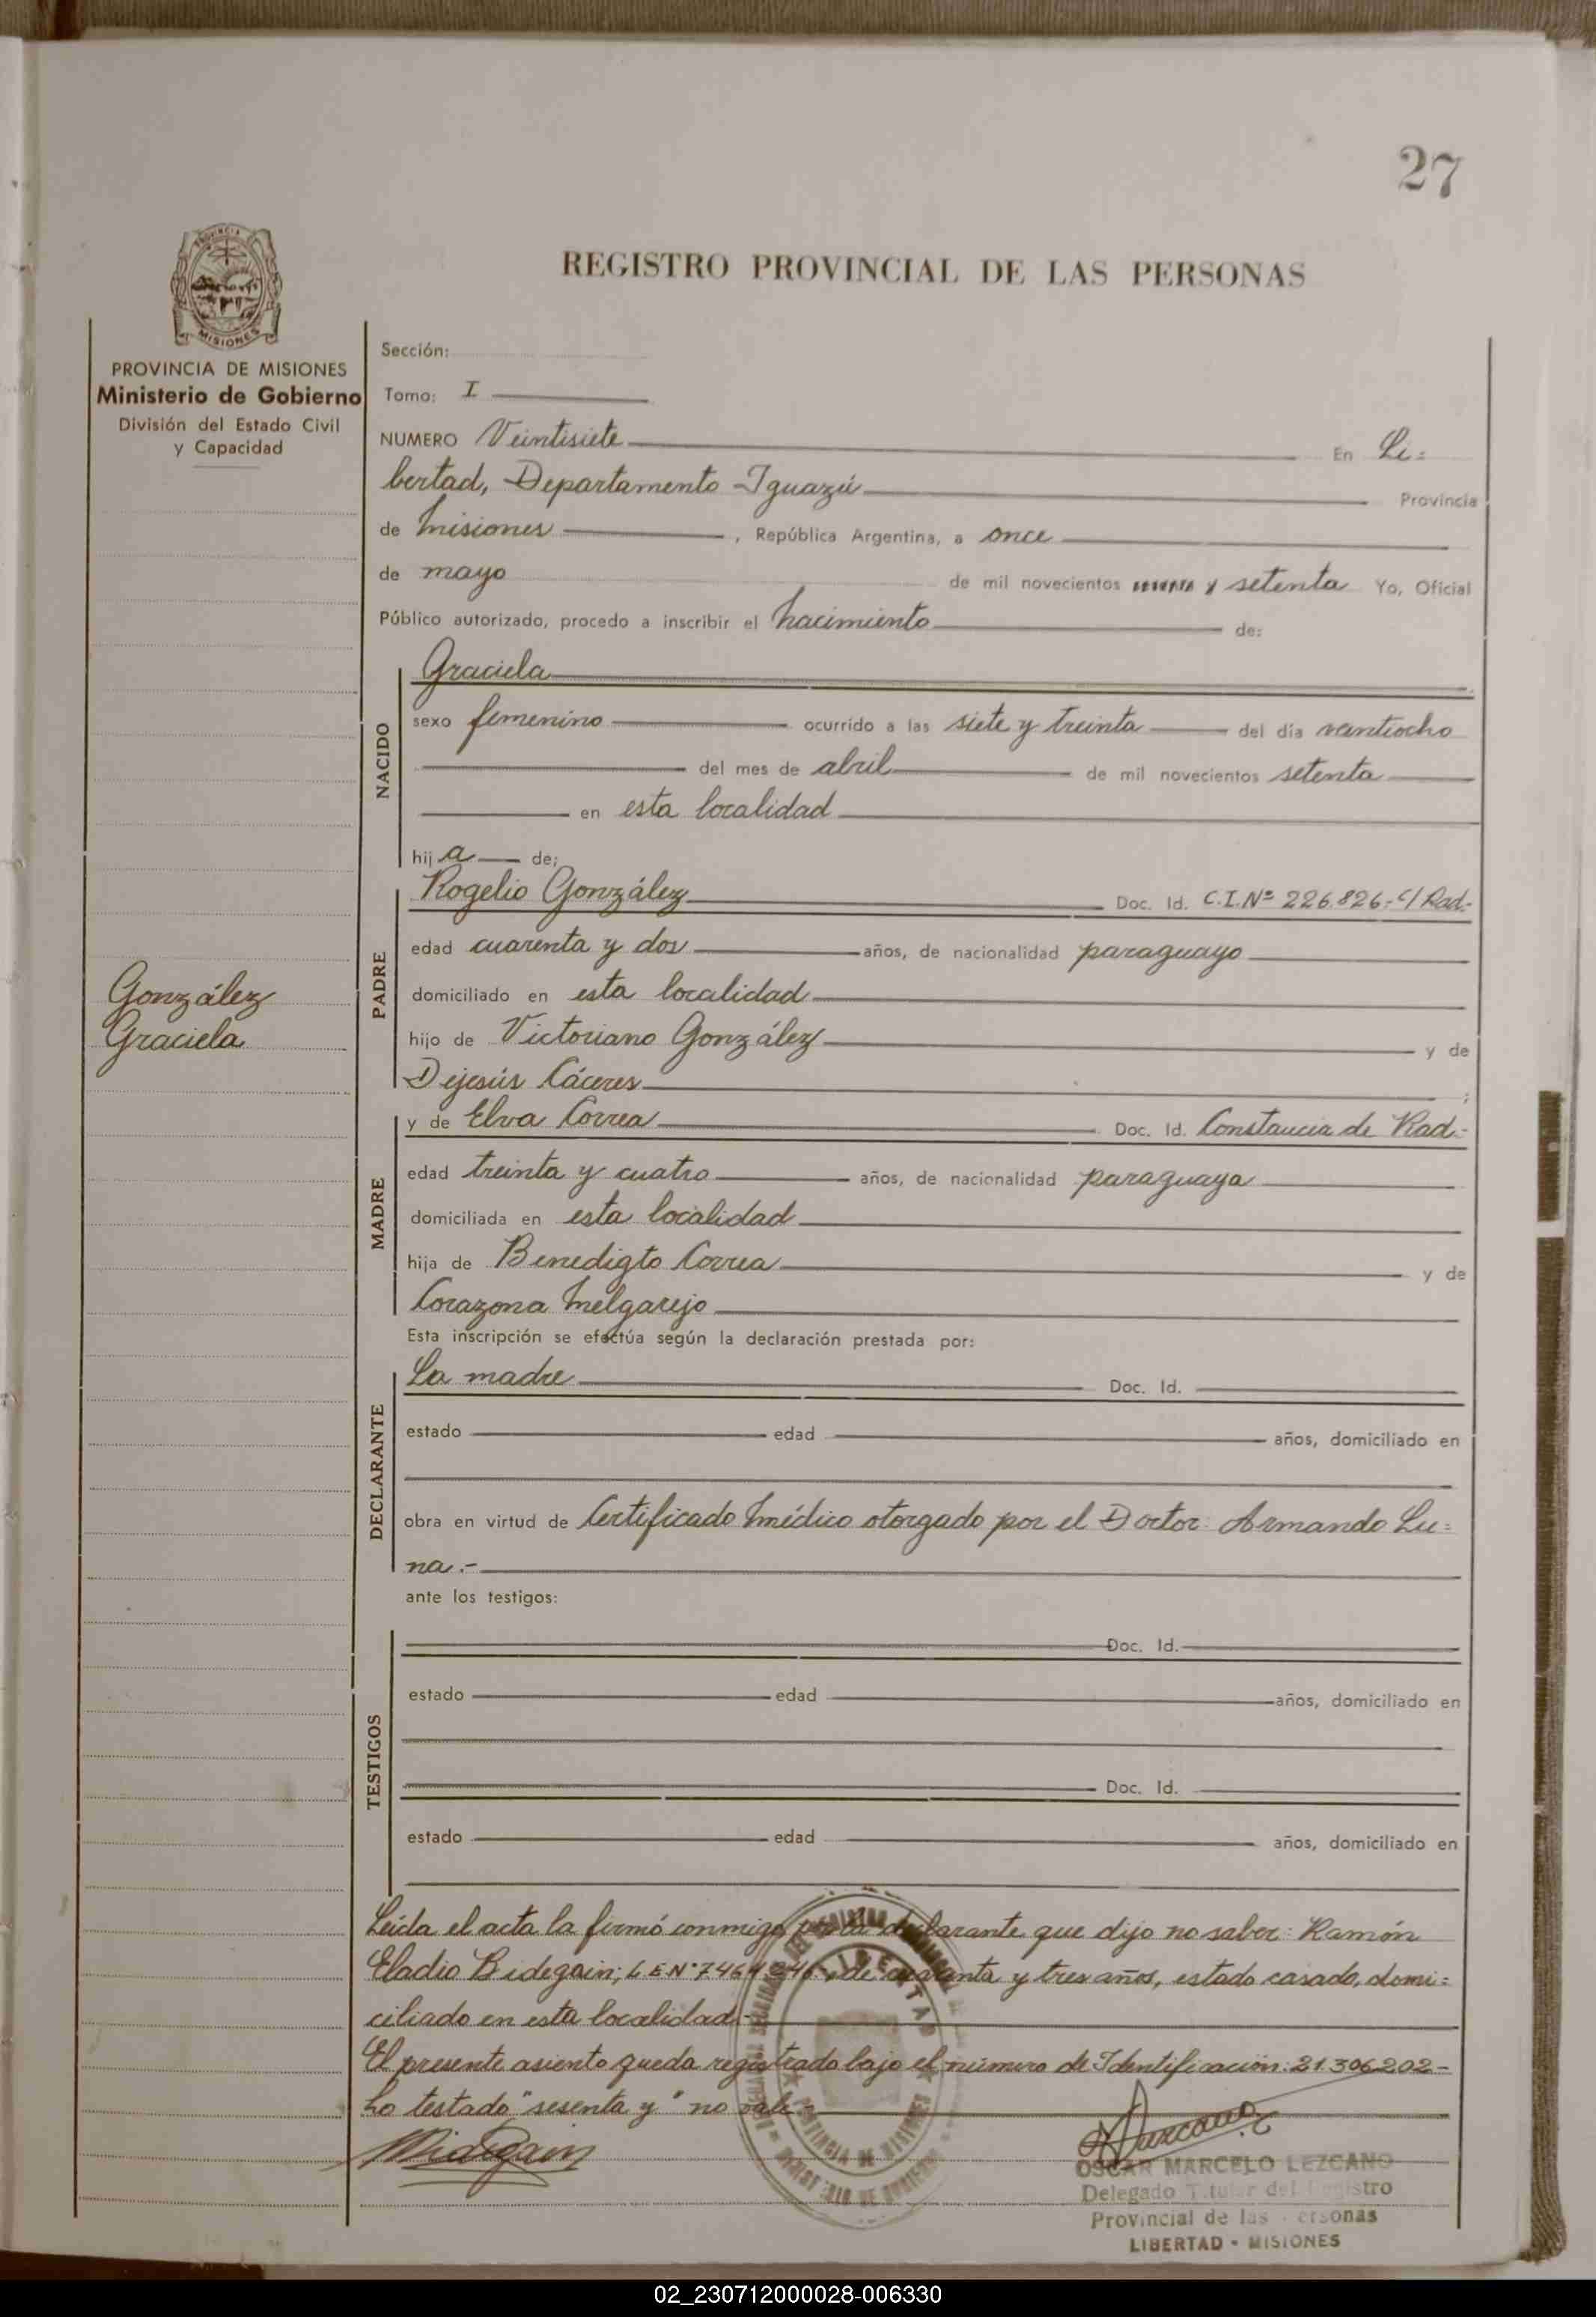 27
PROVINCIA
MISIONES
REGISTRO PROVINCIAL DE LAS PERSONAS
PROVINCIA DE MISIONES
Ministerio de Gobierno
División del Estado Civil
y Capacidad
Sección:
Tomo: I
NUMERO Veintisiete En Li=
bertad, Departamento Iguazú Provincia
de Misiones, República Argentina, a once
de mayo de mil novecientos sesenta y setenta Yo, Oficial
Público autorizado, procedo a inscribir el Nacimiento de:
NACIDO
Graciela
sexo femenino ocurrido a las siete y treinta del día veintiocho
del mes de abril de mil novecientos setenta
en esta localidad
hija de;
PADRE
Rogelio González Doc. Id. C.I.Nº 226.826.- c/ Rad.-
edad cuarenta y dos años, de nacionalidad paraguayo
domiciliado en esta localidad
hijo de Victoriano González y de
Dejesús Cáceres ;
González
Graciela
MADRE
y de Elva Correa Doc. Id. Constancia de Rad.-
edad treinta y cuatro años, de nacionalidad paraguaya
domiciliada en esta localidad
hija de Benedigto Correa y de
Corazona Melgarejo
Esta inscripción se efectúa según la declaración prestada por:
DECLARANTE
La madre Doc. Id.
estado edad años, domiciliado en
obra en virtud de Certificado Médico otorgado por el Doctor: Armando Lu=
na.-
ante los testigos:
TESTIGOS
Doc. Id.
estado edad años, domiciliado en
Doc. Id.
estado edad años, domiciliado en
Leída el acta la firmó conmigo por la declarante que dijo no saber: Ramón
Eladio Bidegain; L.E.Nº de cuarenta y tres años, estado casado, domi=
ciliado en esta localidad.-
El presente asiento queda registrado bajo el número de Identificación: 21.306.202-
Lo testado "sesenta y" no vale.-
LIBERTAD
PROVINCIA DE MISIONES
OSCAR MARCELO LEZCANO
Delegado Titular del Registro
Provincial de las Personas
LIBERTAD - MISIONES
02_230712000028-006330